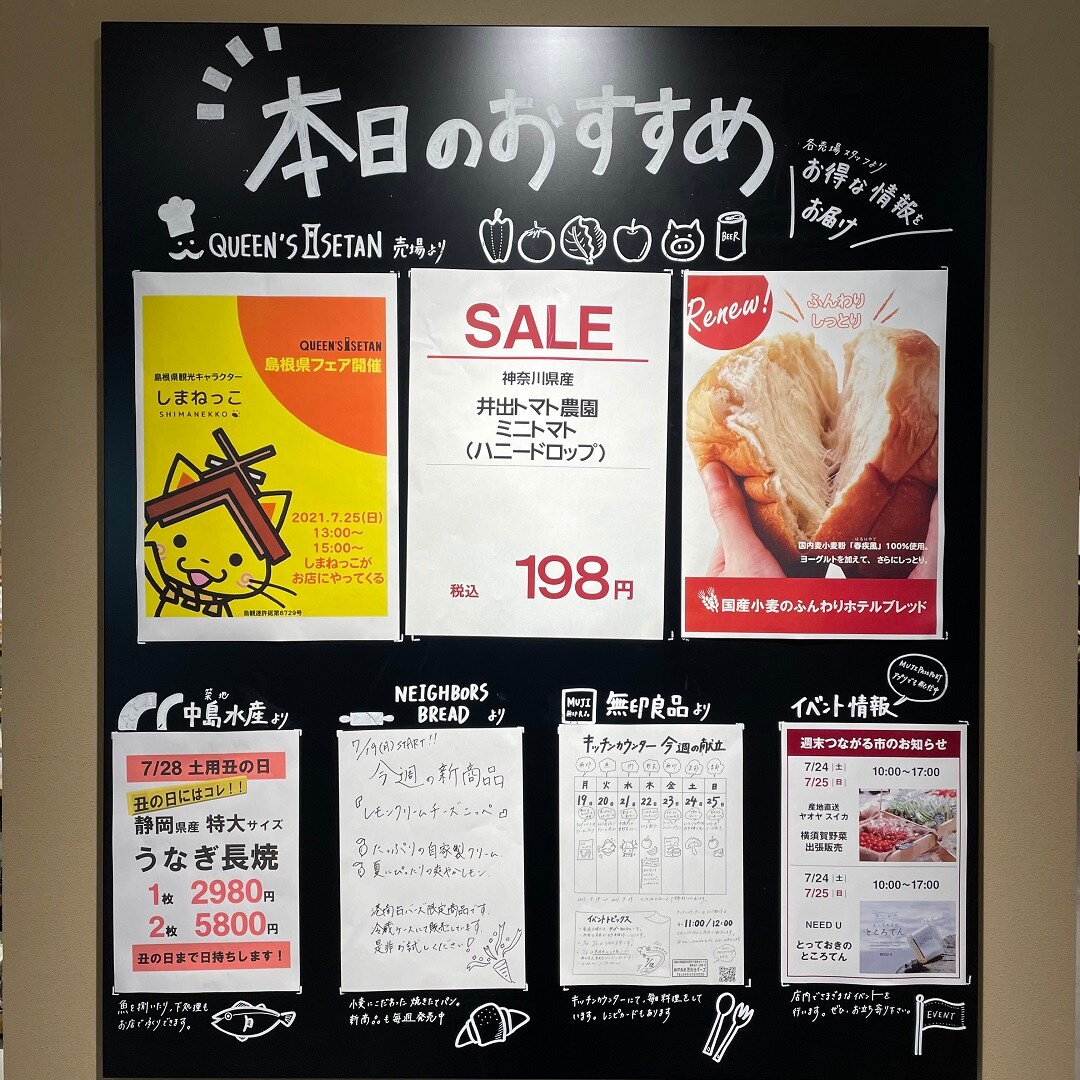 本日のおすすめ
各売場スタッフより
お得な情報を
お届け
QUEEN'S ISETAN 売場より
BEER
QUEEN'S ISETAN
島根県フェア開催
島根県観光キャラクター
しまねっこ
SHIMANEKKO
2021.7.25(日)
13:00〜
15:00〜
しまねっこが
お店にやってくる
島観連許諾第6729号
SALE
神奈川県産
井出トマト農園
ミニトマト
(ハニードロップ)
税込 198円
Renew!
ふんわり
しっとり
はるはやて
国内麦小麦粉「春疾風」100%使用。
ヨーグルトを加えて、さらにしっとり。
国産小麦のふんわりホテルブレッド
築地
中島水産より
7/28 土用丑の日
丑の日にはコレ!!
静岡県産 特大サイズ
うなぎ長焼
1枚 2980円
2枚 5800円
丑の日まで日持ちします!
魚を捌いたり、下処理も
お店で承りできます。
NEIGHBORS
BREAD より
7/19(月)START!!
今週の新商品
『レモンクリームチーズコッペ』
たっぷりの自家製クリーム
夏にぴったりの爽やかレモン
港南台バーズ限定商品です。
冷蔵ケースにて販売しています
是非お試しください!
小麦にこだわった焼きたてパン。
新商品も毎週発売中
MUJI
無印良品
無印良品より
キッチンカウンター 今週の献立
月 火 水 木 金 土 日
19 20 21 22 23 24 25
イベントトピックス
11:00/12:00
キッチンカウンターにて、毎日料理をして
います。レシピカードもあります
MUJI PASSPORT
アプリでも配信中
イベント情報
週末つながる市のお知らせ
7/24|土|
7/25|日|
10:00〜17:00
産地直送
ヤオヤ スイカ
横須賀野菜
出張販売
7/24|土|
7/25|日|
10:00〜17:00
NEED U
とっておきの
ところてん
ところてん
NEED U
店内でさまざまなイベントを
行います。ぜひ、お立ち寄り下さい。
EVENT